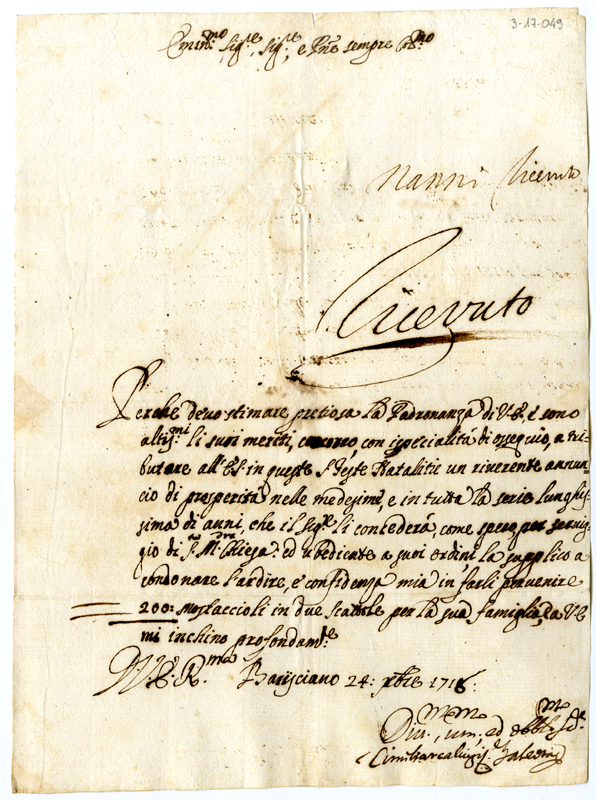 3-17-049
Emin.mo Sig.re, Sig.re, e Pñe sempre Col.mo
Nanni Ricevuto
Ricevuto
Perche devo stimare pretiosa la Padronanza di V.E. e sono
altis.mi li suoi meriti, con ispecialitá di ossequio, a tri-
butare all'E.S. in queste S. Feste Natalitie un riverente annun-
cio di prosperitá nelle medesime, e in tutta la serie lunghis-
sima di anni, che il Sig.re li concederá, come spero per servig-
gio di S.ta M.dre Chiesa: ed ubediente a suoi ordini la supplico a
condonare l'ardire, e confidenza mia in farli pervenire
200: mostaccioli in due scatole per la sua famiglia, ea V.E.
mi inchino profondam.te
V.E. R.ma Barisciano 24: xbre 171
Div.mo, um.mo ed obb.mo